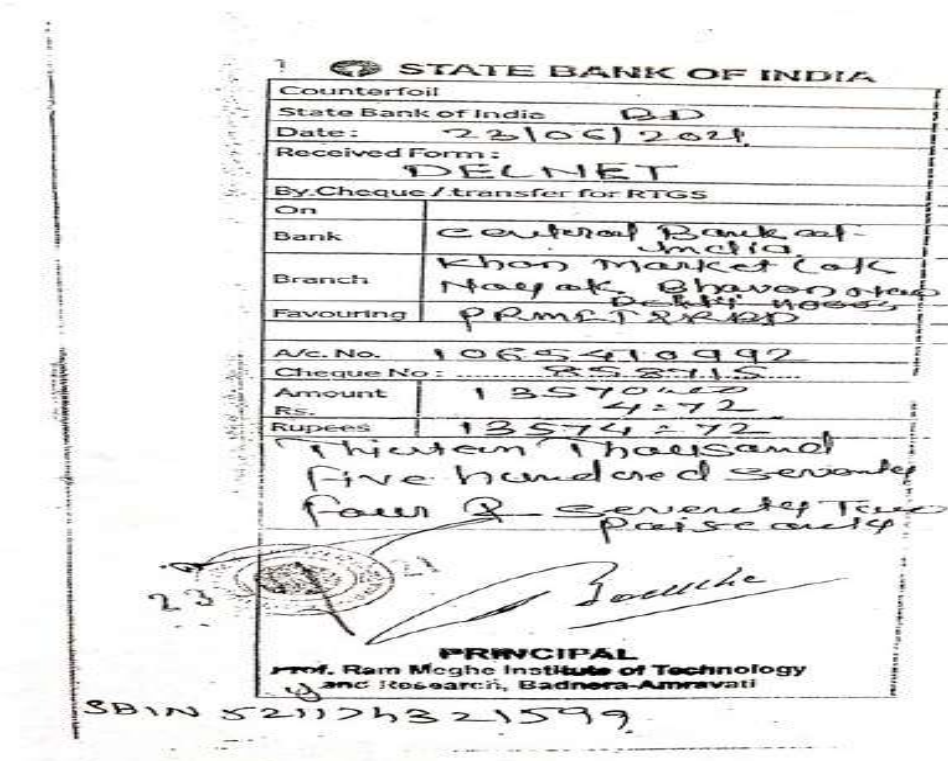 STATE BANK OF INDIA
Counterfoil
State Bank of India BD
Date: 23/06/2021
Received Form:
DELNET
By.Cheque / transfer for RTGS
On
Bank Central Bank of
India
Branch Khan Market Lok
Nayak Bhavan New
Delhi
Favouring
A/c. No. 1065410992
Cheque No: 858715
Amount 13570
Rs. 4=72
Rupees 13574=72
Thirteen Thousand
Five hundered seventy
Four & Seventy Two
Paise only
23 21
PRINCIPAL
Prof. Ram Meghe Institute of Technology
and Research, Badnera-Amravati